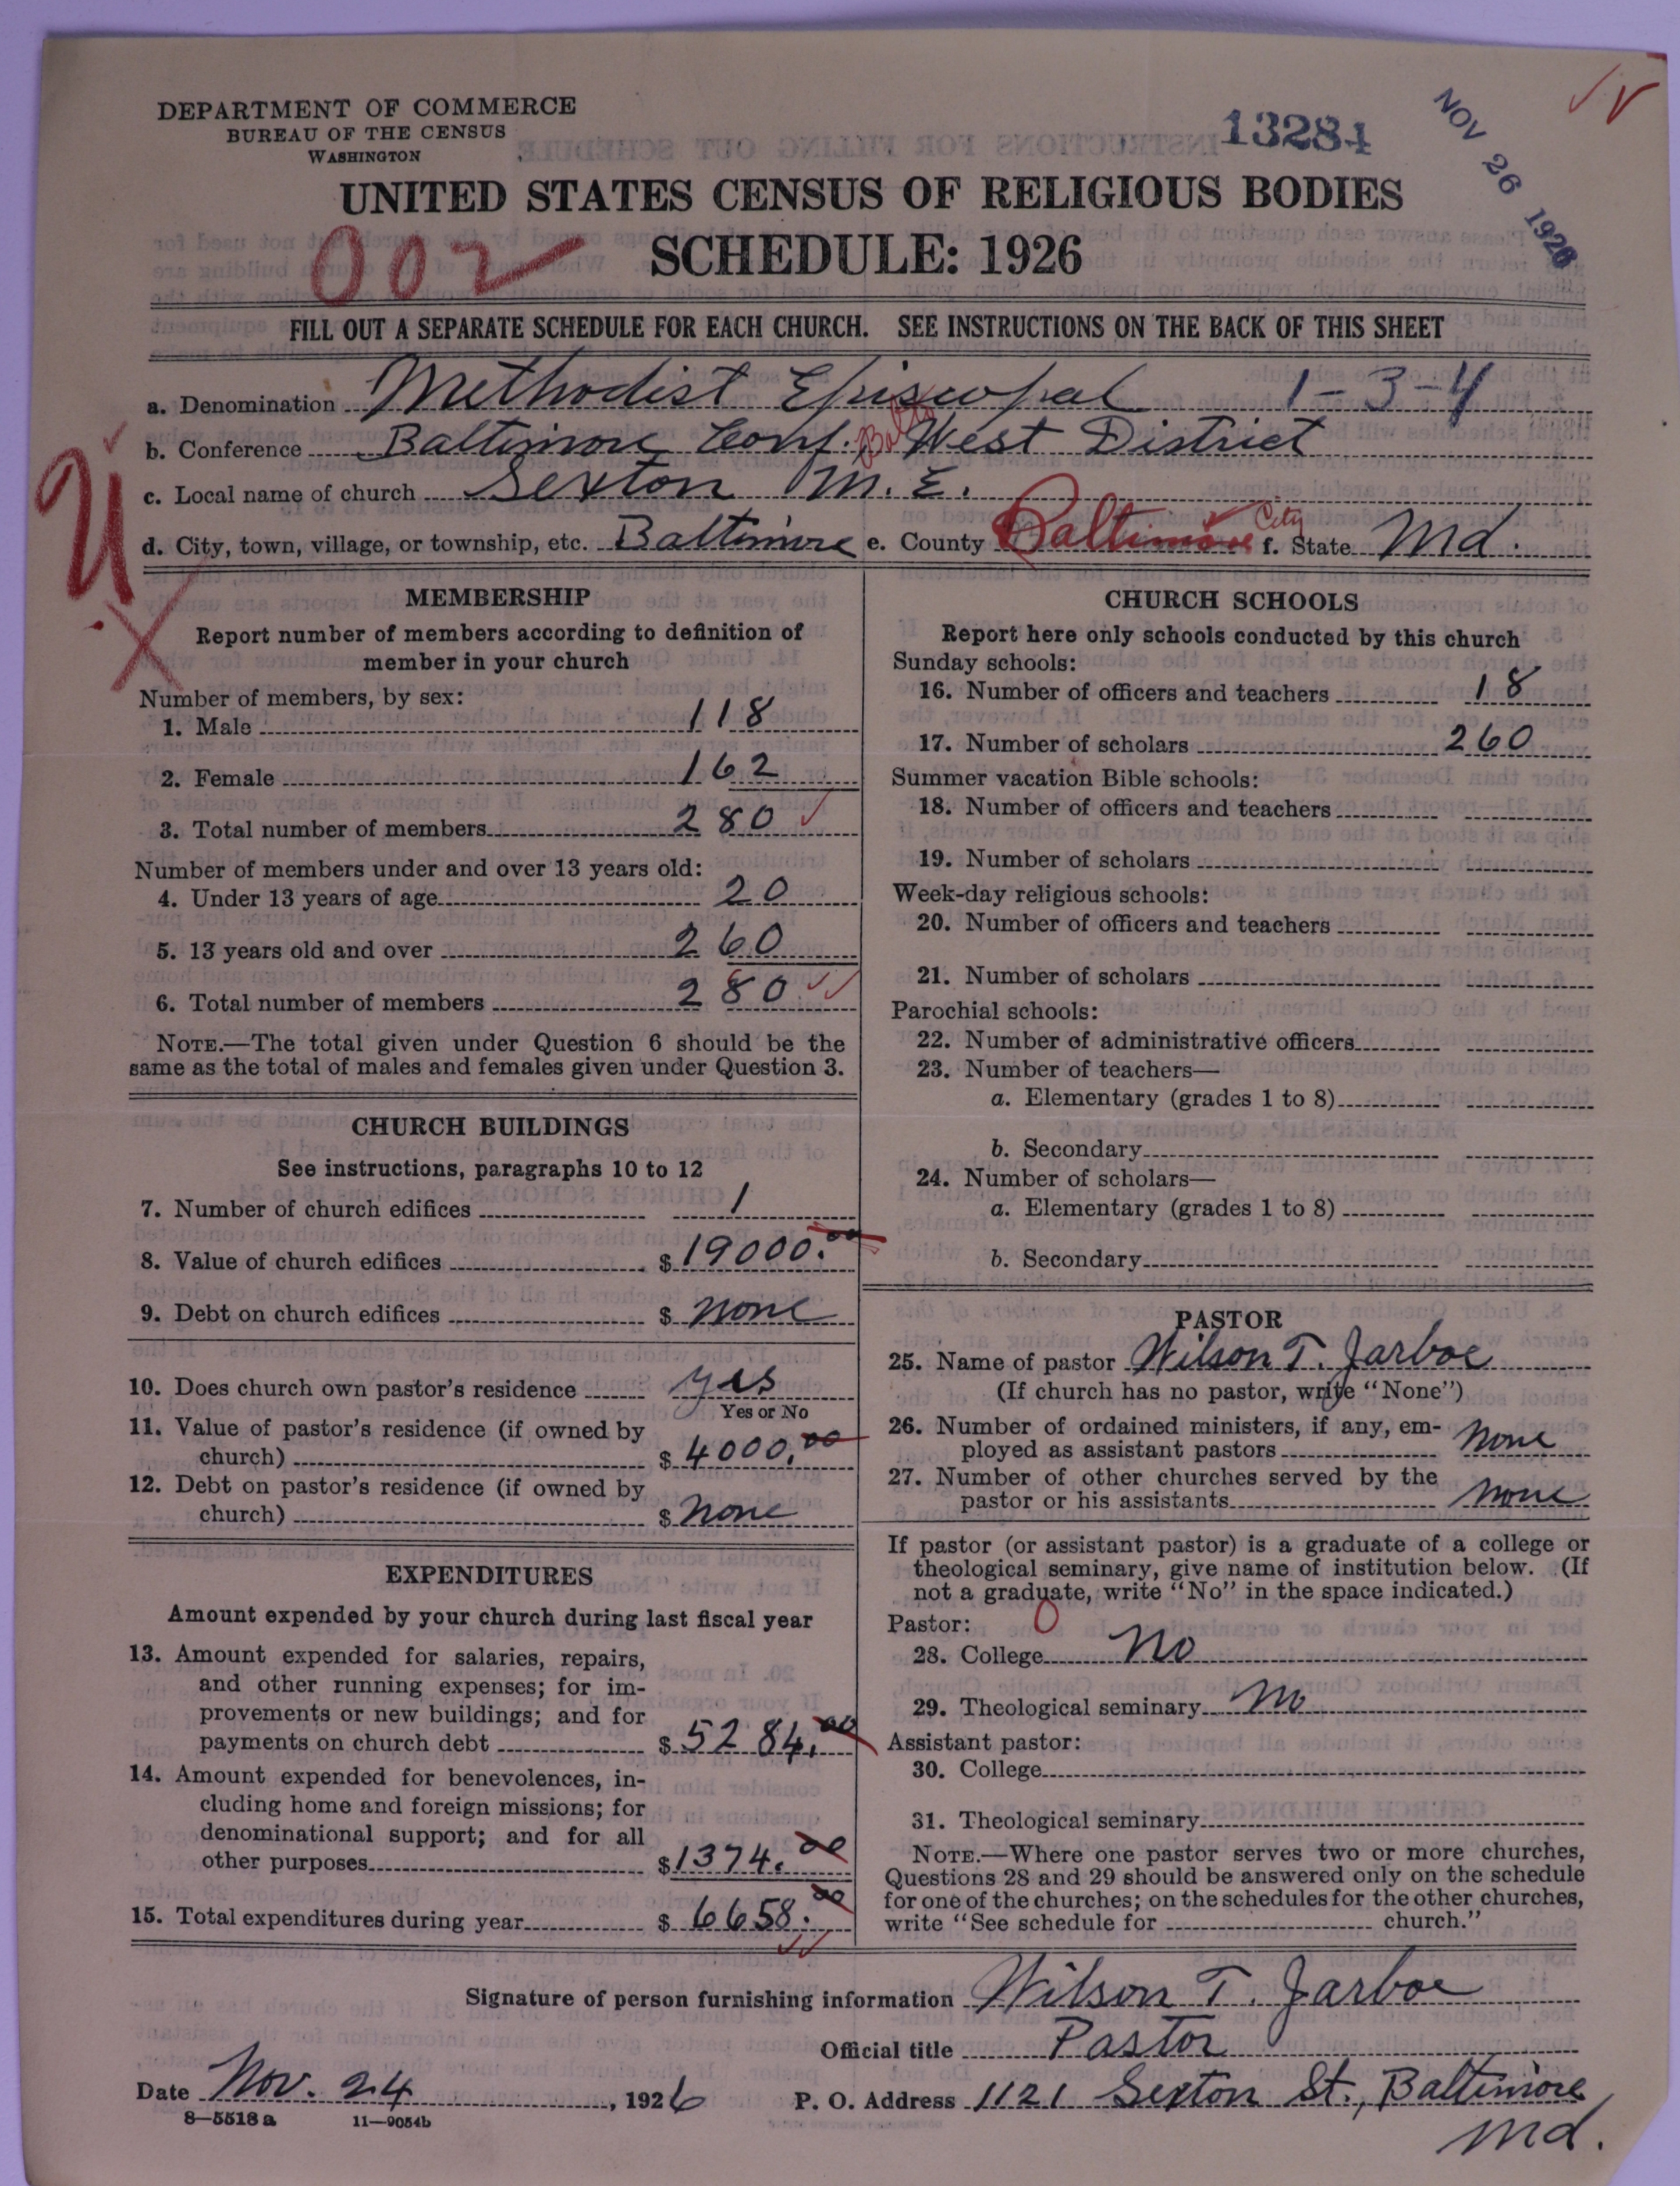 DEPARTMENT OF COMMERCE
BUREAU OF THE CENSUS
WASHINGTON
13284
NOV 26 1926
UNITED STATES CENSUS OF RELIGIOUS BODIES
002
SCHEDULE: 1926
FILL OUT A SEPARATE SCHEDULE FOR EACH CHURCH. SEE INSTRUCTIONS ON THE BACK OF THIS SHEET
a. Denomination Methodist Episcopal 1-3-4
b. Conference Baltimore Conf. Balto West District
c. Local name of church Sexton M.E.
d. City, town, village, or township, etc. Baltimore e. County Baltimore City f. State Md.
U
X
MEMBERSHIP
Report number of members according to definition of
member in your church
Number of members, by sex:
1. Male 118
2. Female 162
3. Total number of members 280
Number of members under and over 13 years old:
4. Under 13 years of age 20
5. 13 years old and over 260
6. Total number of members 280
NOTE.—The total given under Question 6 should be the
same as the total of males and females given under Question 3.
CHURCH BUILDINGS
See instructions, paragraphs 10 to 12
7. Number of church edifices 1
8. Value of church edifices $ 19000.00
9. Debt on church edifices $ none
10. Does church own pastor's residence yes
Yes or No
11. Value of pastor's residence (if owned by
church) $ 4000.00
12. Debt on pastor's residence (if owned by
church) $ none
EXPENDITURES
Amount expended by your church during last fiscal year
13. Amount expended for salaries, repairs,
and other running expenses; for im-
provements or new buildings; and for
payments on church debt $ 5284.00
14. Amount expended for benevolences, in-
cluding home and foreign missions; for
denominational support; and for all
other purposes $ 1374.00
15. Total expenditures during year $ 6658.00
CHURCH SCHOOLS
Report here only schools conducted by this church
Sunday schools:
16. Number of officers and teachers 18
17. Number of scholars 260
Summer vacation Bible schools:
18. Number of officers and teachers
19. Number of scholars
Week-day religious schools:
20. Number of officers and teachers
21. Number of scholars
Parochial schools:
22. Number of administrative officers
23. Number of teachers—
a. Elementary (grades 1 to 8)
b. Secondary
24. Number of scholars—
a. Elementary (grades 1 to 8)
b. Secondary
PASTOR
25. Name of pastor Wilson T. Jarboe
(If church has no pastor, write "None")
26. Number of ordained ministers, if any, em-
ployed as assistant pastors none
27. Number of other churches served by the
pastor or his assistants none
If pastor (or assistant pastor) is a graduate of a college or
theological seminary, give name of institution below. (If
not a graduate, write "No" in the space indicated.)
Pastor: 0
28. College no
29. Theological seminary no
Assistant pastor:
30. College
31. Theological seminary
NOTE.—Where one pastor serves two or more churches,
Questions 28 and 29 should be answered only on the schedule
for one of the churches; on the schedules for the other churches,
write "See schedule for church."
Signature of person furnishing information Wilson T. Jarboe
Official title Pastor
Date Nov. 24, 1926 P. O. Address 1121 Sexton St., Baltimore
Md.
8—5518 a 11—9054b